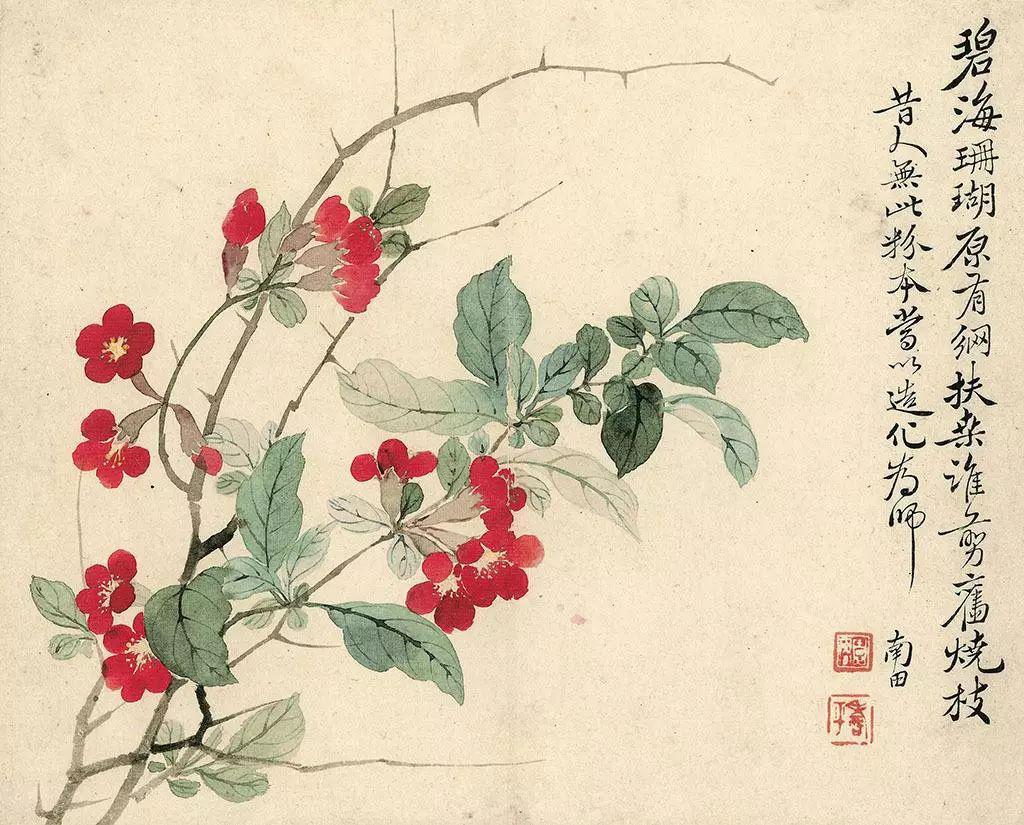 碧海珊瑚原有網扶桒誰剪舊燒枝
昔人無此粉本當以造化為師
南田
壽平